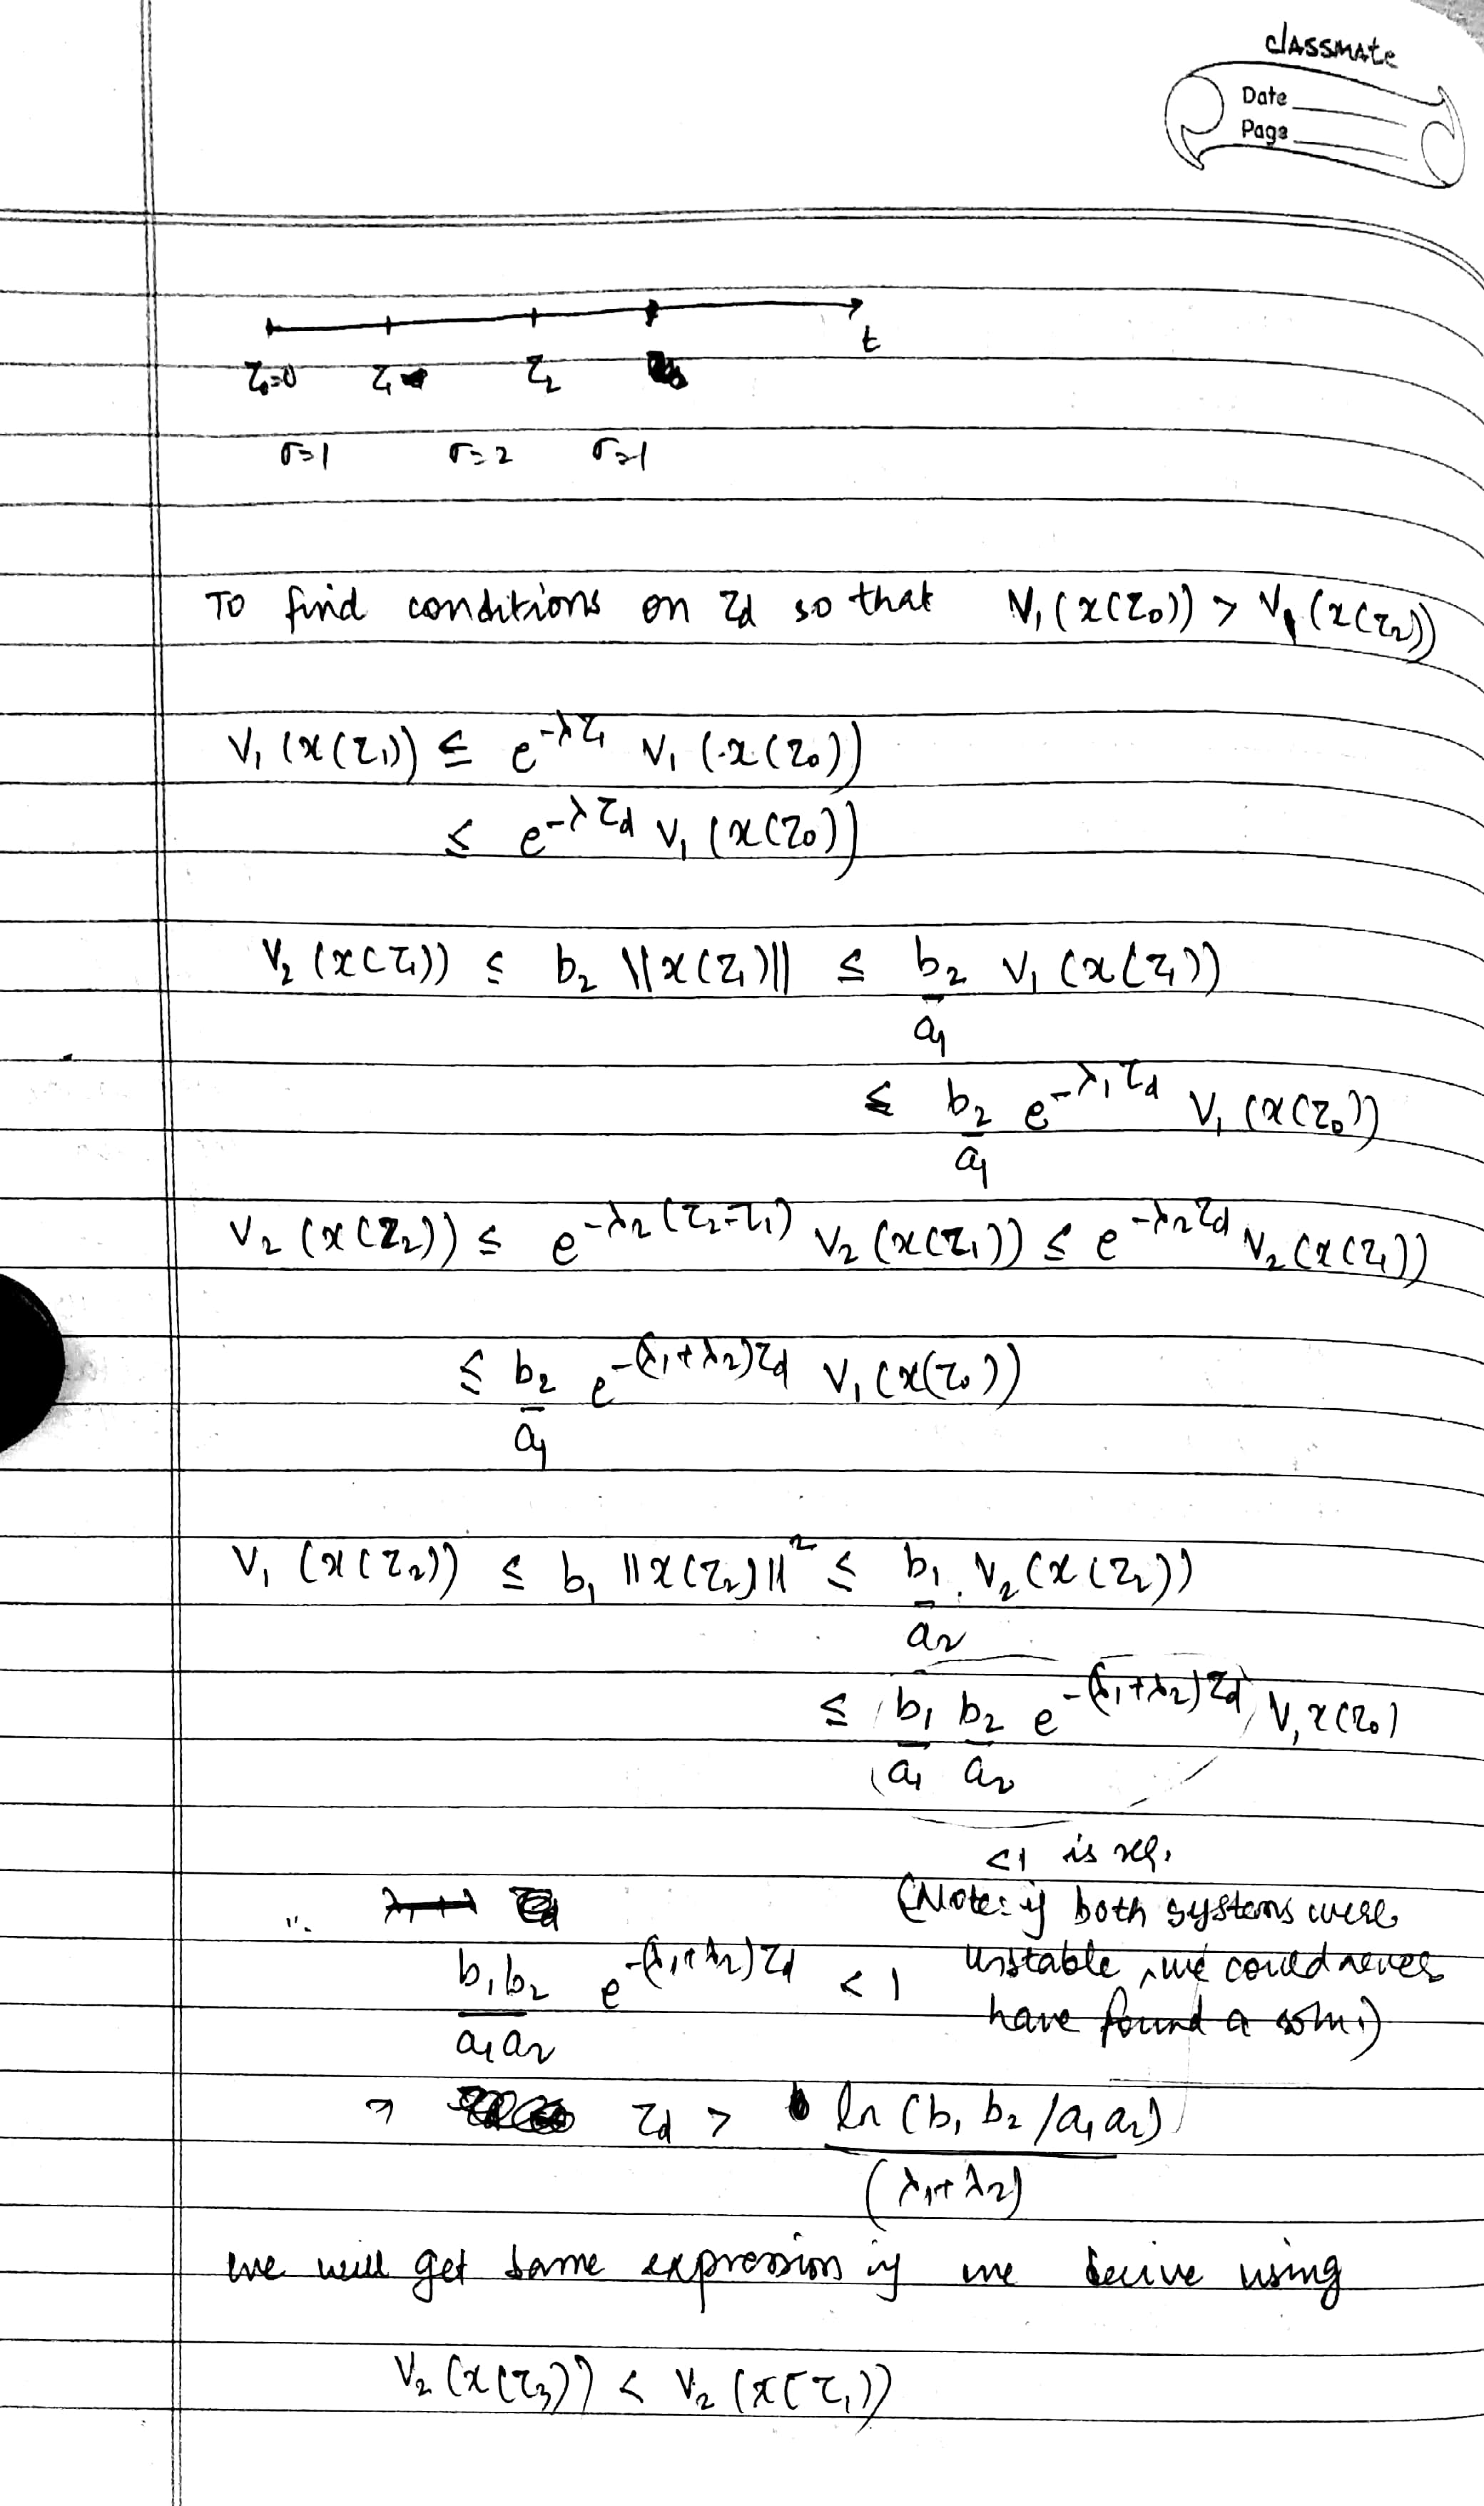 classmate
Date
Page
t
τ₀=0 τ₁ τ₂
σ=1 σ=2 σ=1
To find conditions on τd so that V₁(x(τ₀)) > V₁(x(τ₂))
V₁(x(τ₁)) ≤ e^-λτ₁ V₁(x(τ₀))
≤ e^-λτd V₁(x(τ₀))
V₂(x(τ₁)) ≤ b₂ ||x(τ₁)|| ≤ b₂/a₁ V₁(x(τ₁))
≤ b₂/a₁ e^-λ₁τd V₁(x(τ₀))
V₂(x(τ₂)) ≤ e^-λ₂(τ₂-τ₁) V₂(x(τ₁)) ≤ e^-λ₂τd V₂(x(τ₁))
≤ b₂/a₁ e^-(λ₁+λ₂)τd V₁(x(τ₀))
V₁(x(τ₂)) ≤ b₁ ||x(τ₂)||² ≤ b₁/a₂ . V₂(x(τ₂))
≤ (b₁/a₁ b₂/a₂ e^-(λ₁+λ₂)τd) V₁x(τ₀)
<1 is req.
(Note: if both systems were
unstable, we could never
have found a soln.)
∴ b₁b₂/a₁a₂ e^-(λ₁+λ₂)τd < 1
⇒ τd > ln(b₁b₂/a₁a₂)/(λ₁+λ₂)
we will get same expression if we derive using
V₂(x(τ₃)) < V₂(x(τ₁))